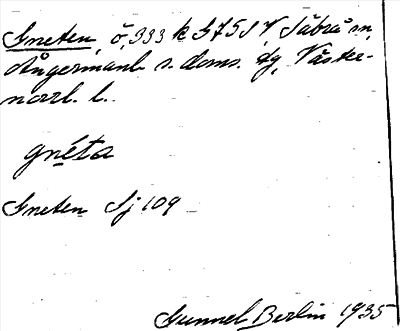 Gneten, ö, 333 k S 75 S V, Säbrå sn,
Ångermanl. s. doms. dg, Väster-
norrl. l.
gnéta
Gneten Sj 109
Gunnel Berlin 1935